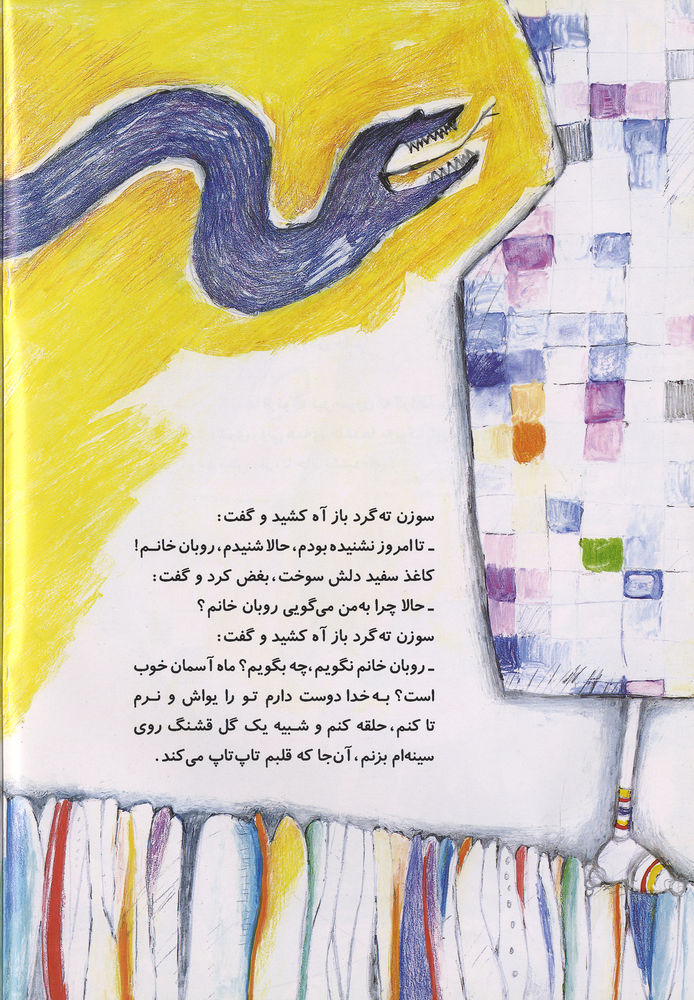 سوزن ته‌گرد باز آه کشید و گفت:
ـ تا امروز نشنیده بودم، حالا شنیدم، روبان خانـم!
کاغذ سفید دلش سوخت، بغض کرد و گفت:
ـ حالا چرا به‌من می‌گویی روبان خانم؟
سوزن ته‌گرد باز آه کشید و گفت:
ـ روبان خانم نگویم، چه بگویم؟ ماه آسمان خوب
است؟ بـه خدا دوست دارم تو را یواش و نـرم
تا کنم، حلقه کنم و شـبیه یک گل قشنگ روی
سینه‌ام بزنم، آن‌جا که قلبم تاپ‌تاپ می‌کند.